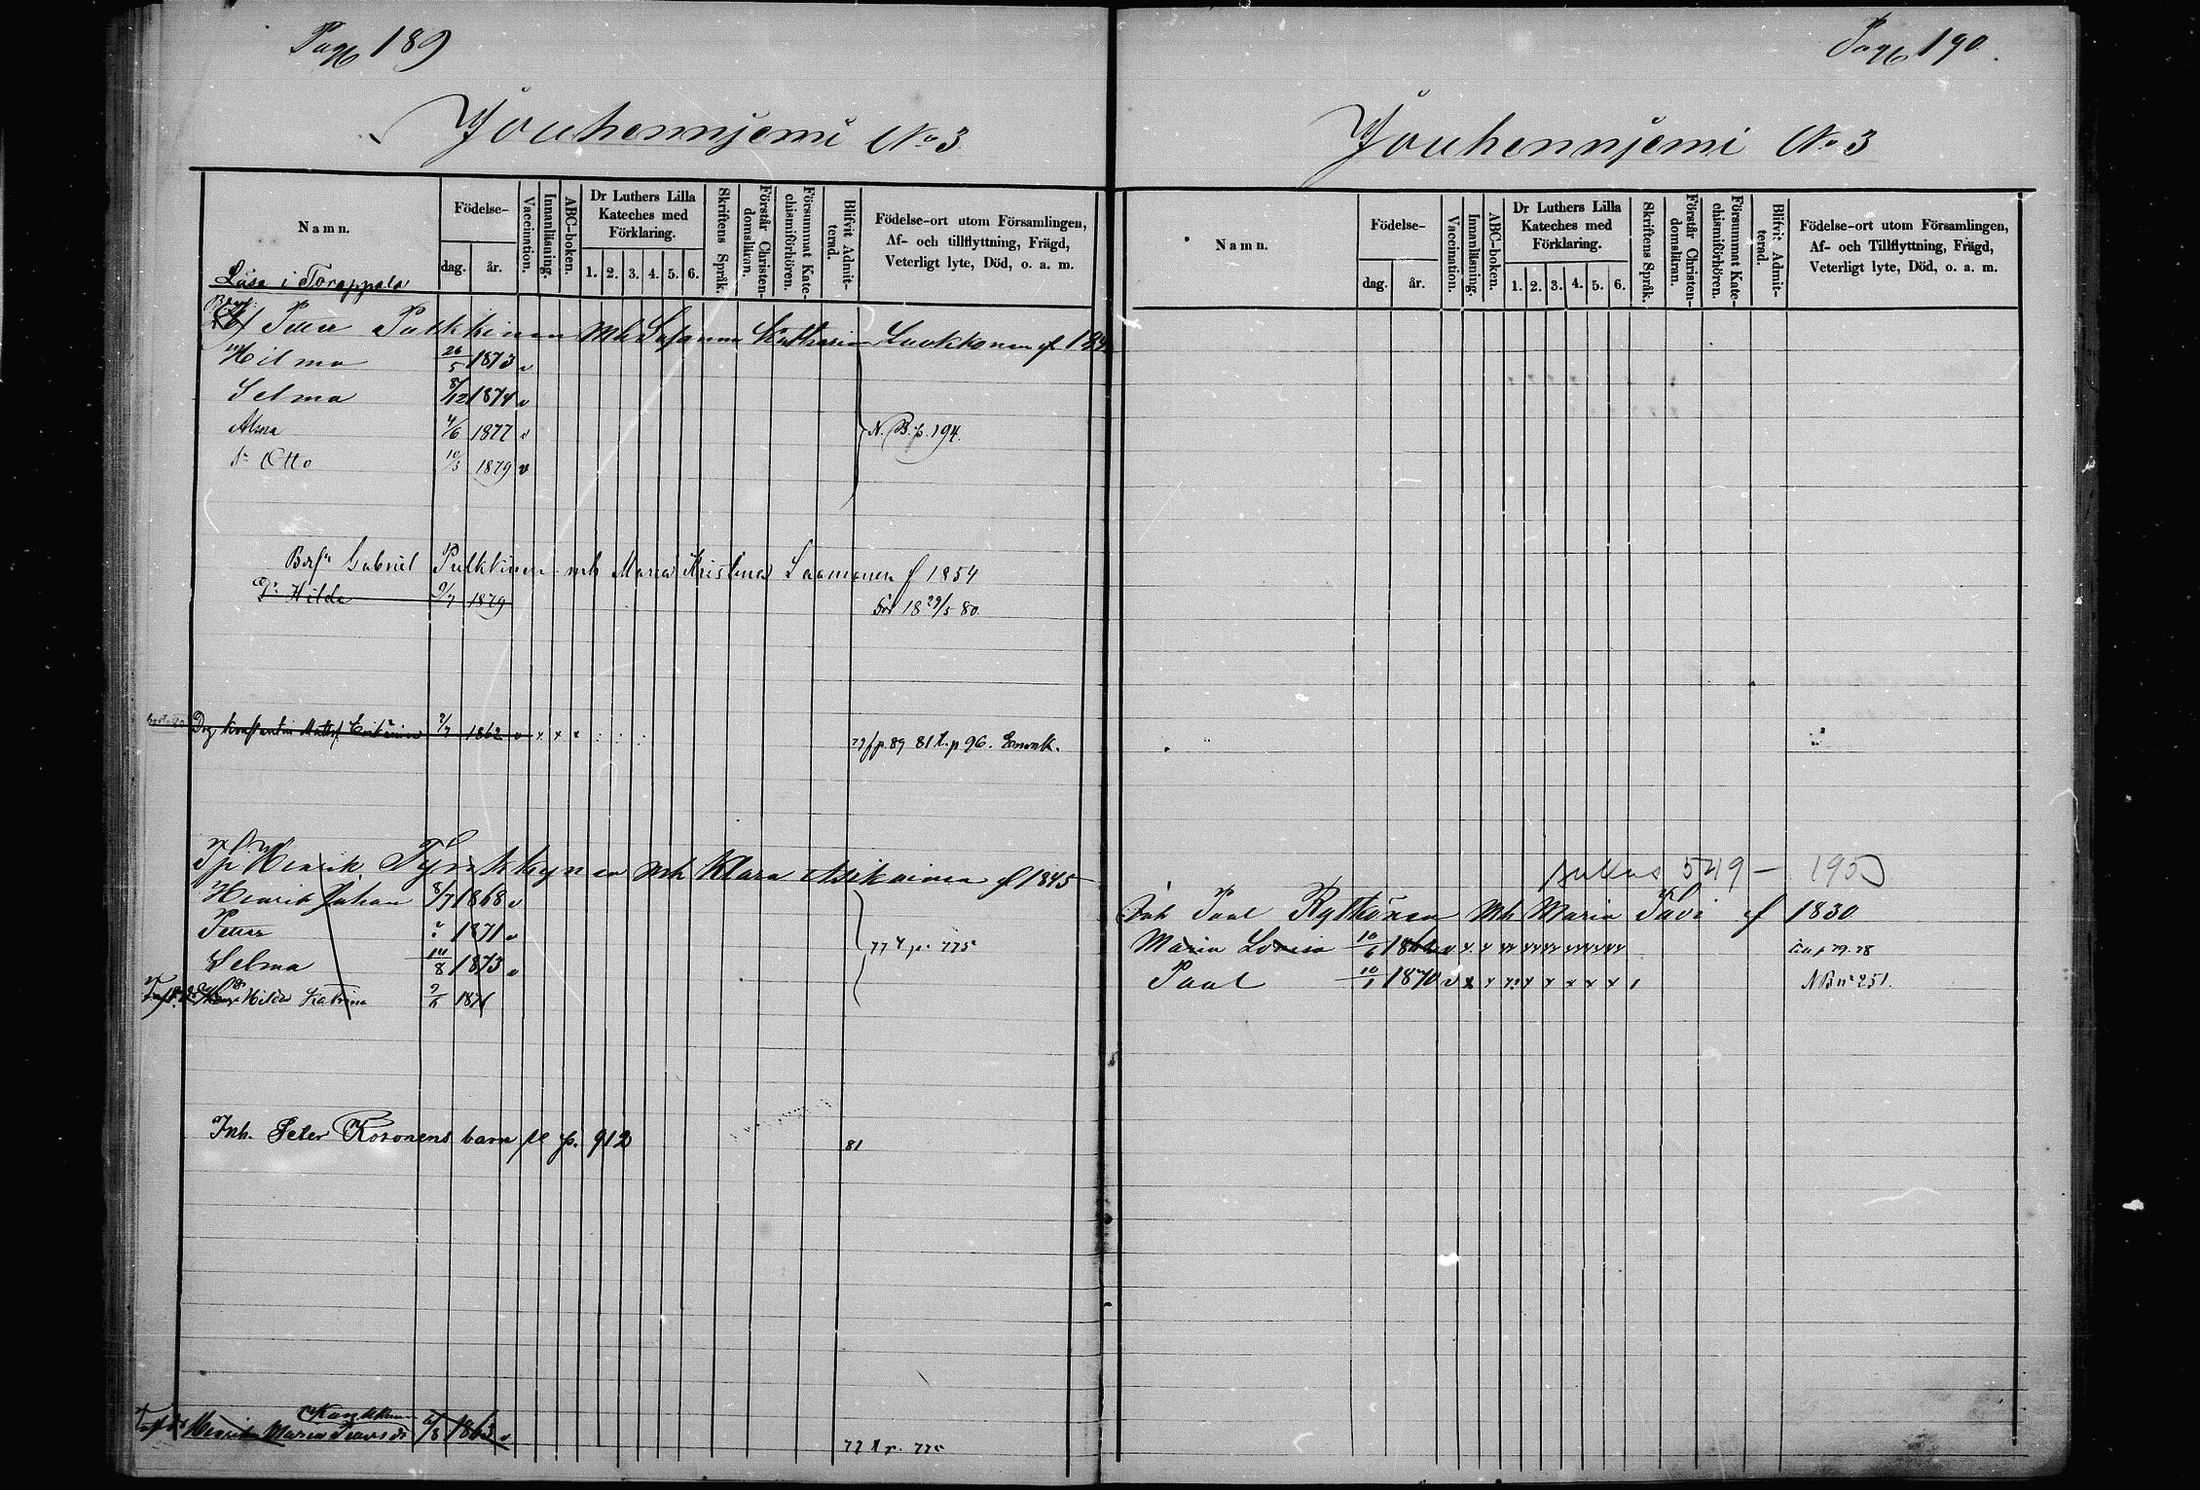 Pag 189
Jouhennjemi No 3
Namn.
Födelse-
dag.
år.
Vaccination.
Innanläsning.
ABC-boken.
Dr Luthers Lilla
Kateches med
Förklaring.
1. 2. 3. 4. 5. 6.
Skriftens Språk.
Förstår Christen-
domsläran.
Försummat Kate-
chismiförhören.
Blifvit Admit-
terad.
Födelse-ort utom Församlingen,
Af- och tillflyttning, Frägd,
Veterligt lyte, Död, o. a. m.
Läsa i Torappala
Petter Pulkkinen mh Susanna Katharina Luukkonen f
Hilma 26/5 1873 v
Selma 8/12 1874 v
Alma 4/6 1877 v
N. B. p. 194.
Otto 10/3 1879 v
Gabriel Pulkkinen mh Maria Kristina Laamanen f 1854
Hilda 9/7 1879
Död 18 29/5 80.
Konstantin 1862 v x x x
79 f p. 89 81 t. p 96.
Henrik Tynkkynen mh Klara Asikainen f 1845
Henrik Johan 8/7 1868 v
Petter 1871 v
77 t p. 775
Selma 8 1873 v
Hilda Katrina
Inh. Peter Kosonens barn se p. 912
81
Maria 1863 v
77 t p. 775
Pag 190.
Jouhennjemi No 3
Namn.
Födelse-
dag.
år.
Vaccination.
Innanläsning.
ABC-boken.
Dr Luthers Lilla
Kateches med
Förklaring.
1. 2. 3. 4. 5. 6.
Skriftens Språk.
Förstår Christen-
domsläran.
Försummat Kate-
chismiförhören.
Blifvit Admit-
terad.
Födelse-ort utom Församlingen,
Af- och Tillflyttning, Frägd,
Veterligt lyte, Död, o. a. m.
549 — 195
Inh Paal Rythönen mh Maria Tavi f 1830
Maria Lovisa 10/6
Paal 1870 v
NB nr 251.